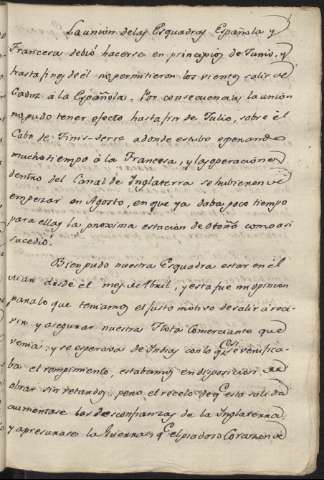 La union delas Esquadras Española y
Francesa debió hacerse en principios de Junio, y
hasta fines de él no permitieron los vientos salir de
Cadiz á la Española. Por consecuencia la union
no pudo tener efecto hasta fin de Julio, sobre el
Cabo de Finis-terre adonde estubo esperando
mucho tiempo á la Francesa, y las operaciones
dentro del Canal de Inglaterra se hubieron de
empezar en Agosto, en que ya daba poco tiempo
para ellas la proxima estacion de Otoño como asi
sucedió.
Bien pudo nuestra Esquadra estar en el
mar desde el mes de Abril, y esta fue mi opinion
para lo que teniamos el justo motivo de salir á reci-
vir y asegurar nuestra Flota Comerciante que
venia, y se esperaba de Indias con lo qe si se verifica-
ba el rompimiento, estabamos en disposicion de
obrar sin retardo; pero el recelo de qe esta salida
aumentase las desconfianzas de la Inglaterra
y apresurase la Guerra, qe el piadoso Corazon de